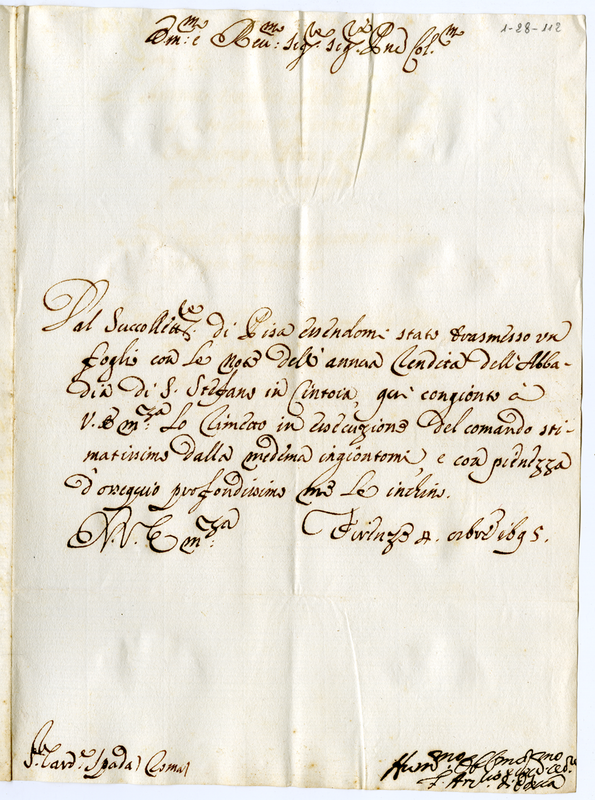 1-28-112
Em:mo e Reu:mo Sig:re Sig:re Pne Col:mo
Dal Succollett:re di Pisa essendomi stato trasmesso un
foglio con le note dell'annua Rendita dell'Abba-
dia di S. Stefano in Cintoia, qui congionto à
V. Em:za lo rimetto in essecuzione del comando sti-
matissimo dalla medema ingiontomi, e con pienezza
d'ossequio profondissimo me le inchino.
D. V. Em:za Firenze 4. ottbre 1695.
S:re Card:e Spada Roma
Hum:mo